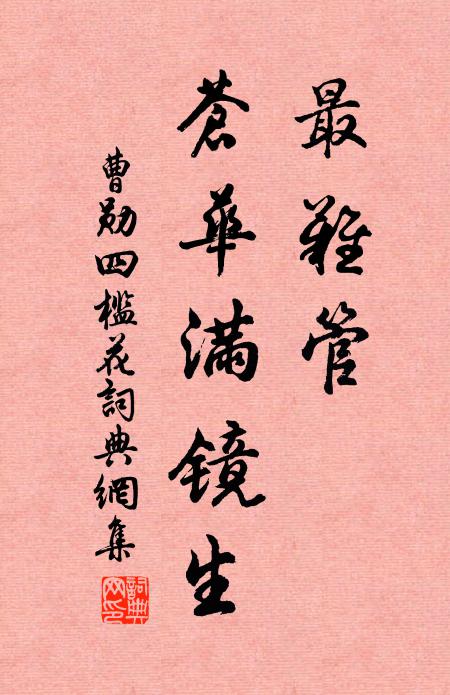 最難管
蒼華滿鏡生
曹勛四檻花詞典網集
詞典網印